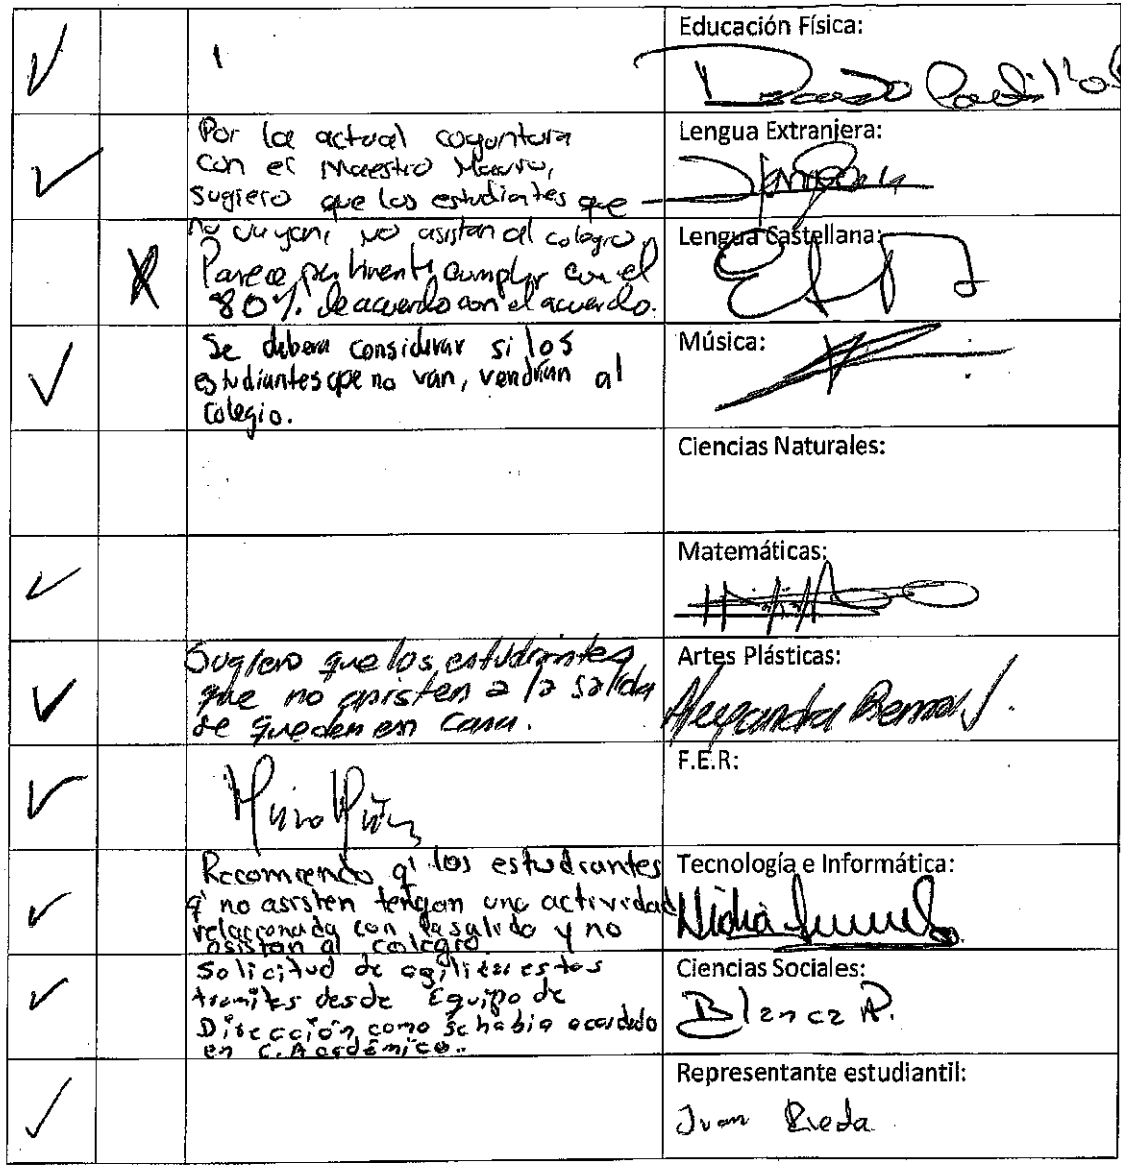 Educación Física:
Lengua Extranjera:
Por la actual coyuntura
con el Maestro Mauro,
sugiero que los estudiantes que
no vayan, no asistan al colegio
Lengua Castellana:
Parece pertinente cumplir con el
80%. de acuerdo con el acuerdo.
Se debera considerar si los
estudiantes que no van, vendrían al
colegio.
Música:
Ciencias Naturales:
Matemáticas:
Sugiero que los estudiantes
que no asisten a la salida
se queden en casa.
Artes Plásticas:
Alejandra Bernal J.
F.E.R:
Recomiendo q' los estudiantes
q' no asisten tengan una actividad
relacionada con la salida y no
asistan al colegio
Tecnología e Informática:
Nidia
Solicitud de agilizar estos
tramites desde Equipo de
Dirección como se habia acordado
en C. Académico..
Ciencias Sociales:
Blanca R.
Representante estudiantil:
Juan Rueda